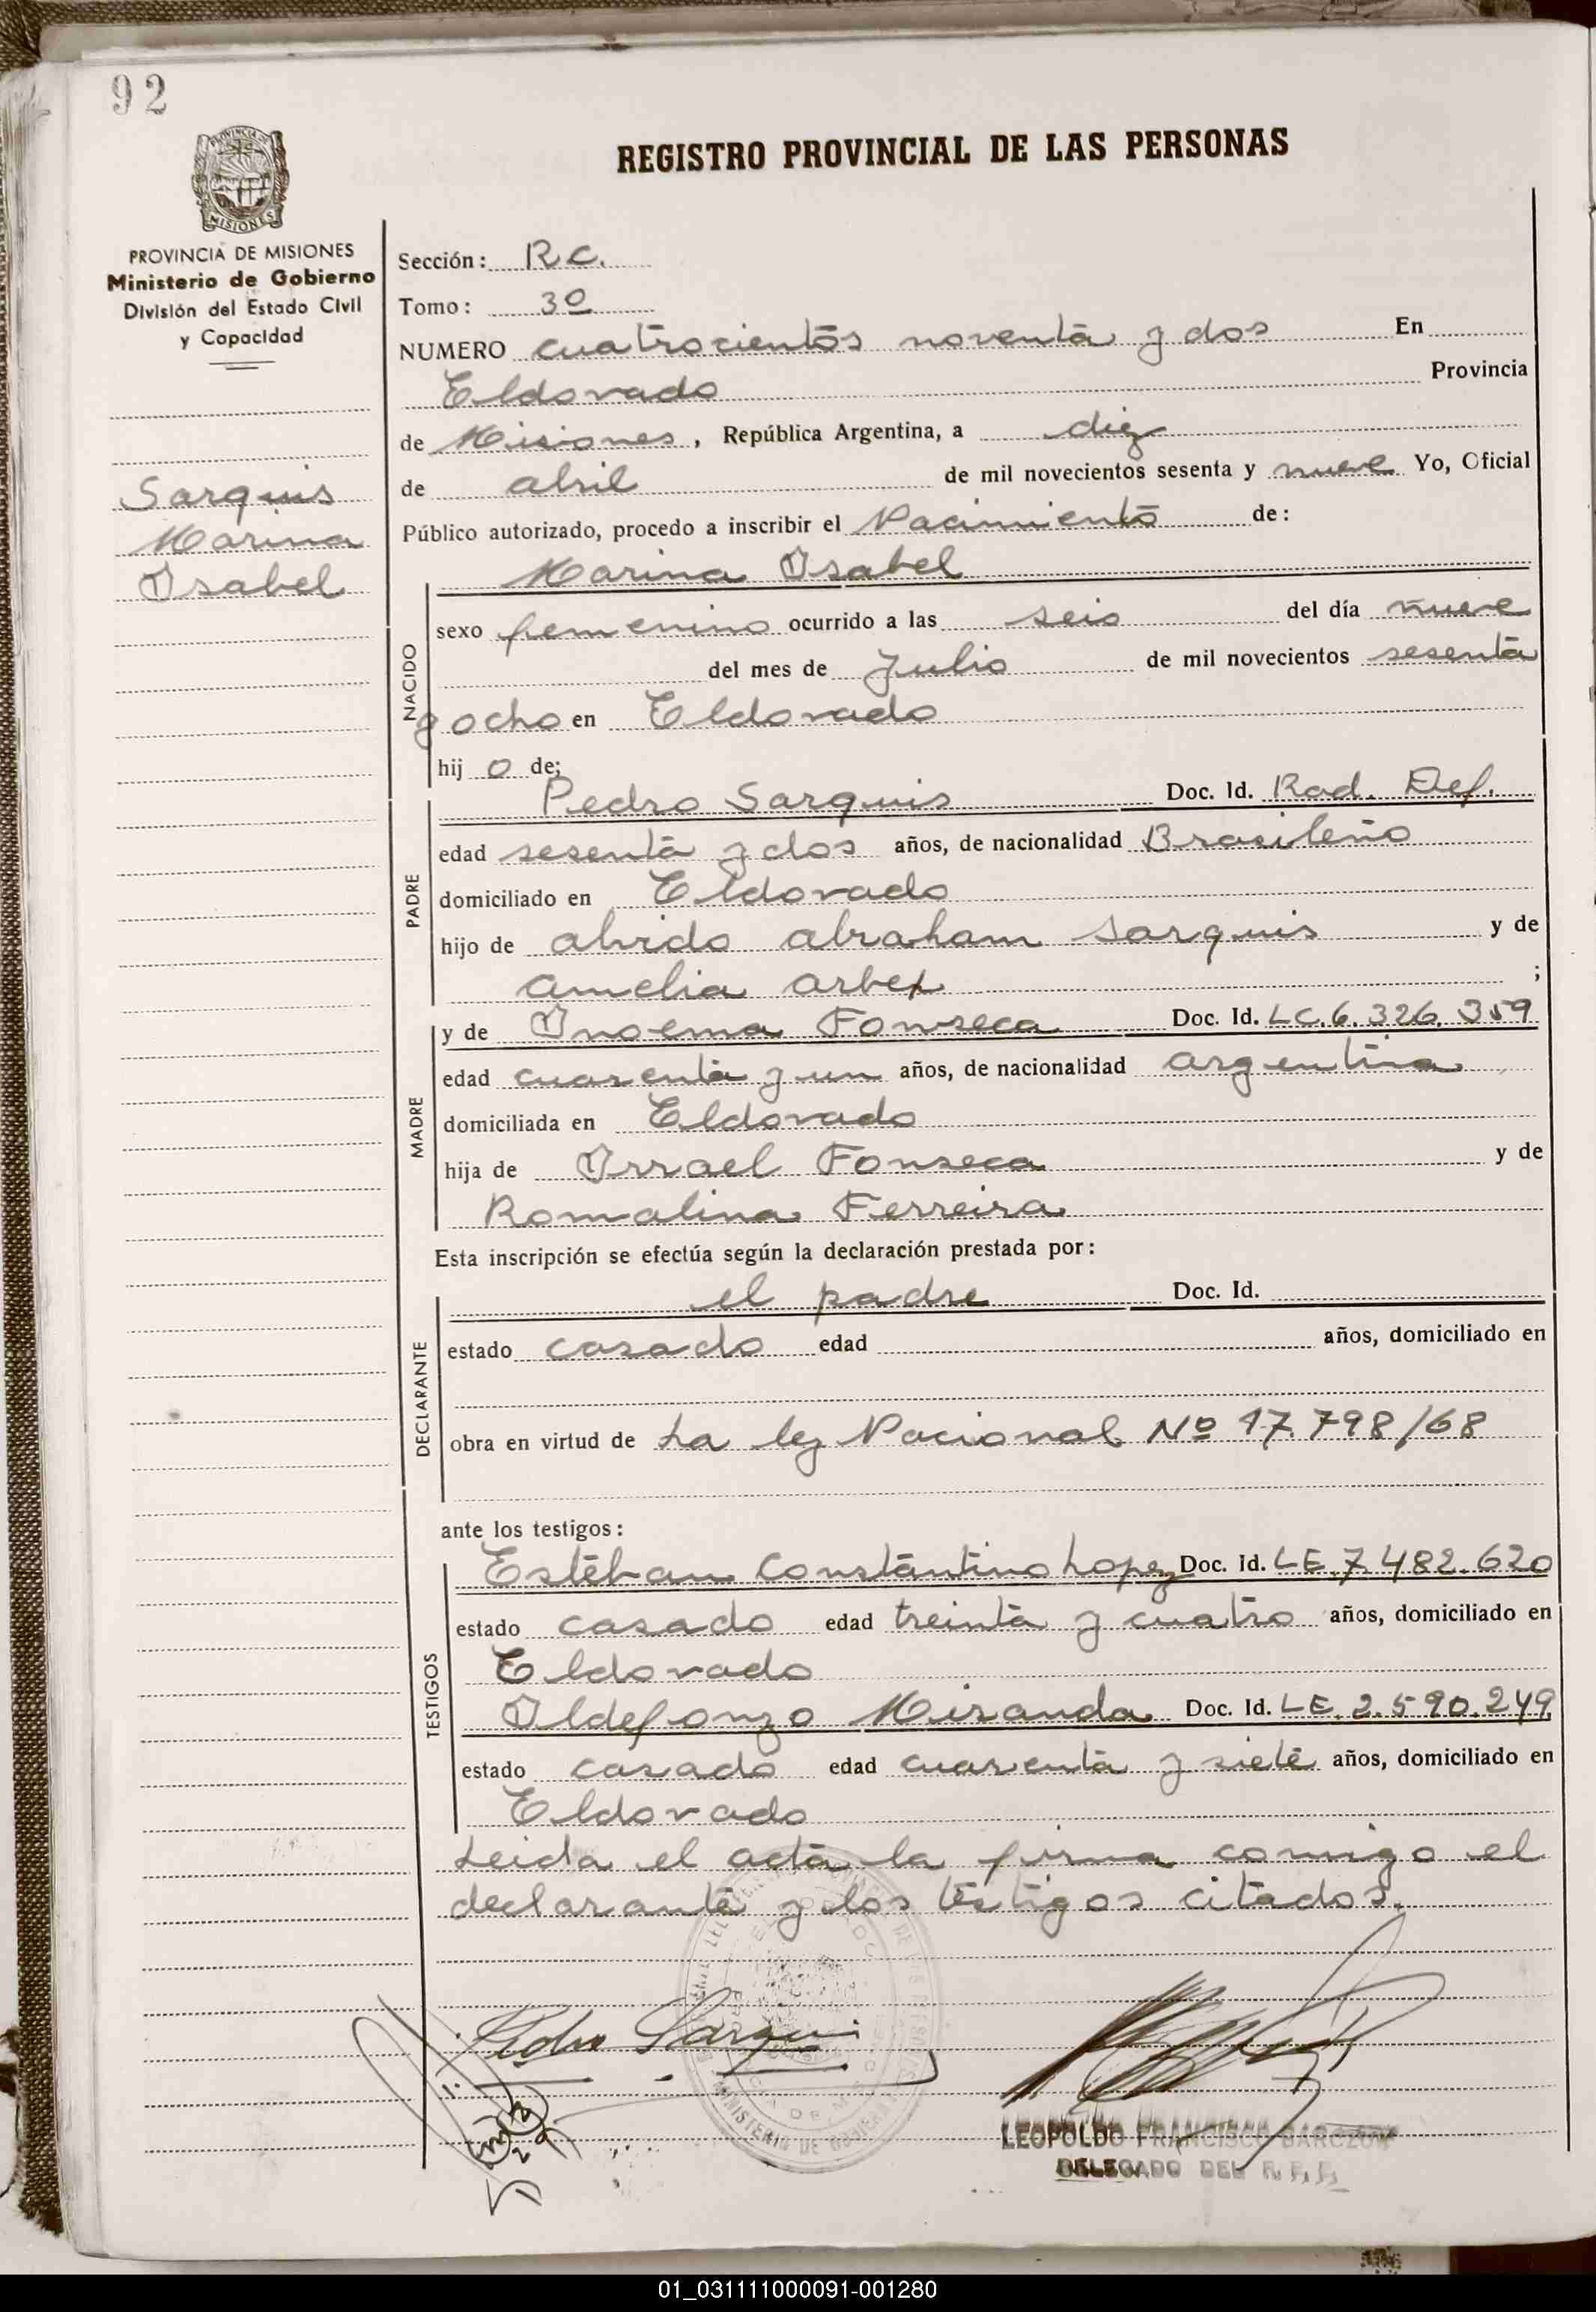 92
PROVINCIA DE
MISIONES
REGISTRO PROVINCIAL DE LAS PERSONAS
PROVINCIA DE MISIONES
Ministerio de Gobierno
División del Estado Civil
y Capacidad
Sarquis
Marina
Isabel
Sección: R.C.
Tomo: 3º
NUMERO cuatrocientos noventa y dos En
Eldorado Provincia
de Misiones, República Argentina, a diez
de abril de mil novecientos sesenta y nueve Yo, Oficial
Público autorizado, procedo a inscribir el Nacimiento de:
Marina Isabel
NACIDO
sexo femenino ocurrido a las seis del día nueve
del mes de Julio de mil novecientos sesenta
y ocho en Eldorado
hij o de;
PADRE
Pedro Sarquis Doc. Id. Rad. Def.
edad sesenta y dos años, de nacionalidad Brasileño
domiciliado en Eldorado
hijo de abraham Sarquis y de
amelia ;
MADRE
y de Inoema Fonseca Doc. Id. LC.6.326.359
edad cuarenta y un años, de nacionalidad argentina
domiciliada en Eldorado
hija de Isrrael Fonseca y de
Romalina Ferreira
Esta inscripción se efectúa según la declaración prestada por:
DECLARANTE
el padre Doc. Id.
estado casado edad años, domiciliado en
obra en virtud de La ley Nacional Nº 17.798/68
ante los testigos:
TESTIGOS
Estéban Constantino Lopez Doc. Id. LE.7.482.620
estado casado edad treinta y cuatro años, domiciliado en
Eldorado
Ildefonzo Miranda Doc. Id. LE.2.590.249
estado casado edad cuarenta y siete años, domiciliado en
Eldorado
Leida el acta la firma comigo el
declarante y los testigos citados.
Pedro Sarqui
MINISTERIO DE GOBIERNO
LEOPOLDO FRANCISCO
DELEGADO DEL R.P.P.
01_031111000091-001280